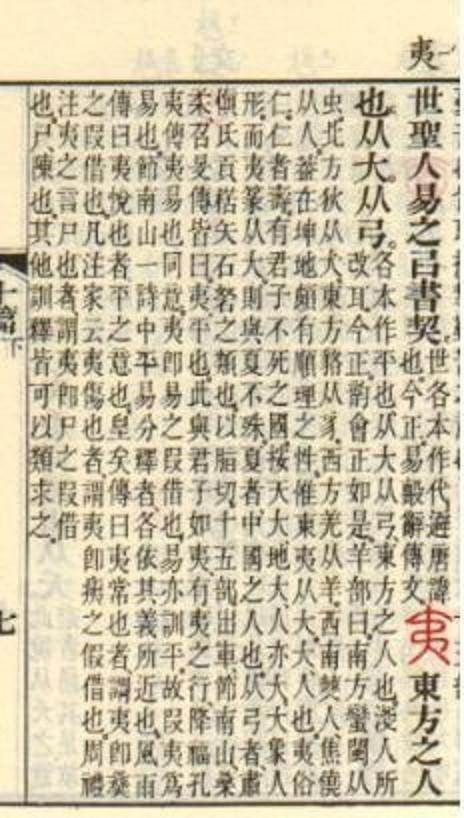 夷
世聖人易之㠯書契。
世各本作代。避唐諱
也。今正。易毄辭傳文
夷 東方之人
也。从大。从弓。
各本作平也。从大从弓。東方之人也。淺人所
改耳。今正。韵會正如是。羊部曰。南方蠻閩从
虫。北方狄从犬。東方貉从豸。西方羌从羊。西南僰人焦僥
从人。葢在坤地頗有順理之性。惟東夷从大。大人也。夷俗
仁。仁者壽。有君子不死之國。按天大地大人亦大。大象人
形。而夷篆从大。則與夏不殊。夏者中國之人也。从弓者肅
愼氏貢楛矢石砮之類也。以脂切。十五部。出車節南山桑
柔召旻傳皆曰。夷平也。此與君子如夷有夷之行降福孔
夷傳夷易也同意。夷卽易之叚借也。易亦訓平。故叚夷爲
易也。節南山一詩中平易分釋者各依其義所近也。風雨
傳曰。夷悅也者平之意也。皇矣傳曰。夷常也者謂夷卽彝
之叚借也。凡注家云夷傷也者謂夷卽痍之假借也。周禮
注夷之言尸也者謂夷卽尸之叚借
也。尸陳也。其他訓釋皆可以類求之。
十篇下
七